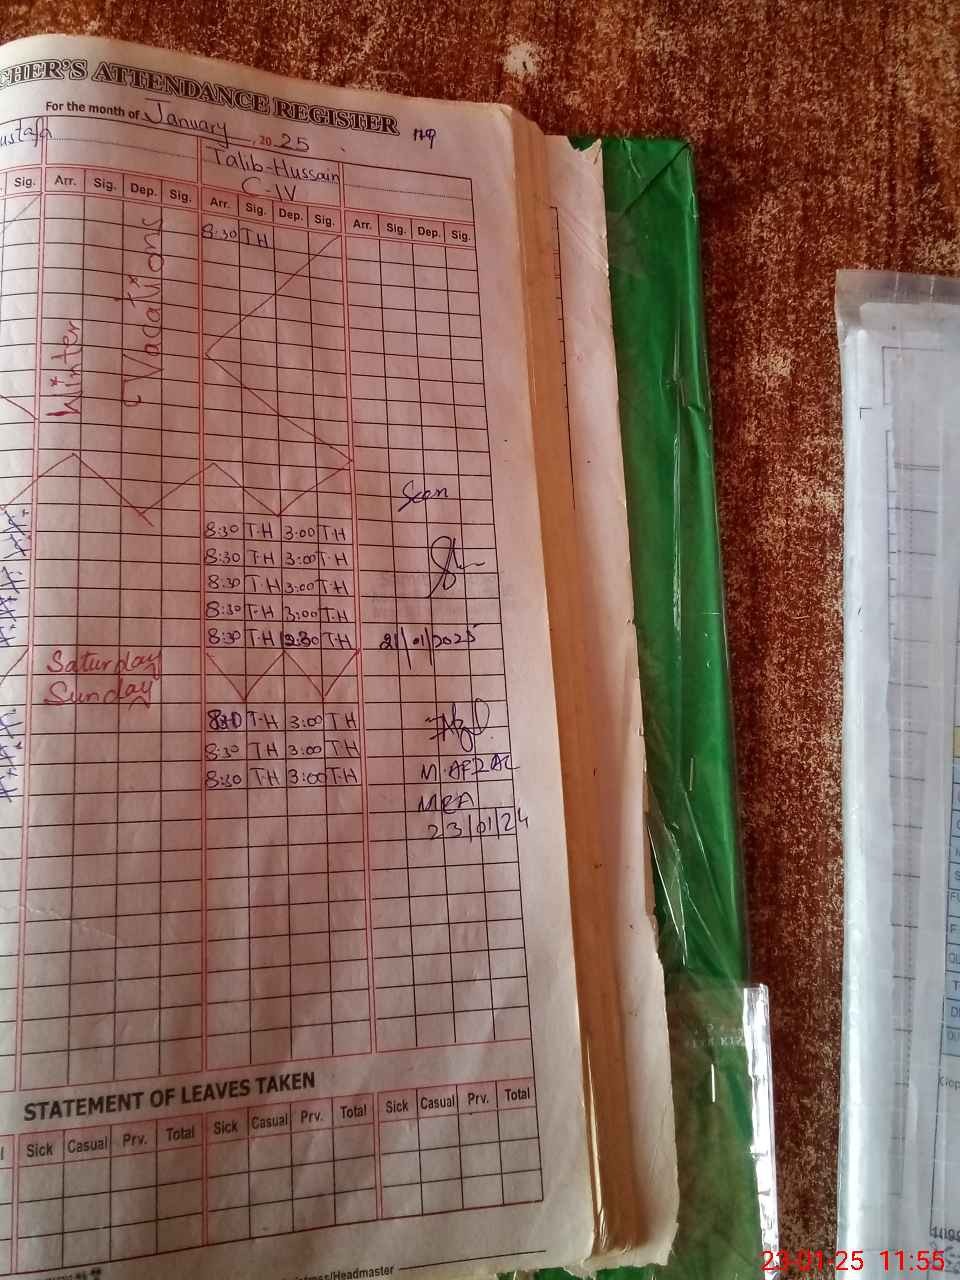 CHER'S ATTENDANCE REGISTER
For the month of January 2025
ustafa
Talib-Hussain
C-IV
Sig. Arr. Sig. Dep. Sig. Arr. Sig. Dep. Sig. Arr. Sig. Dep. Sig.
8:30 TH
Winter
Vacations
Seen
8:30 T-H 3:00 T-H
8:30 T-H 3:00 T-H
8:30 T-H 3:00 T-H
8:30 T-H 3:00 T-H
8:30 T-H 12:30 T-H 21/01/2025
Saturday
Sunday
8:30 T-H 3:00 T-H
8:30 T-H 3:00 T-H
8:30 T-H 3:00 T-H M.AFZAL
MEA
23/01/24
STATEMENT OF LEAVES TAKEN
Sick Casual Prv. Total Sick Casual Prv. Total Sick Casual Prv. Total
/Headmaster
23-01-25 11:55